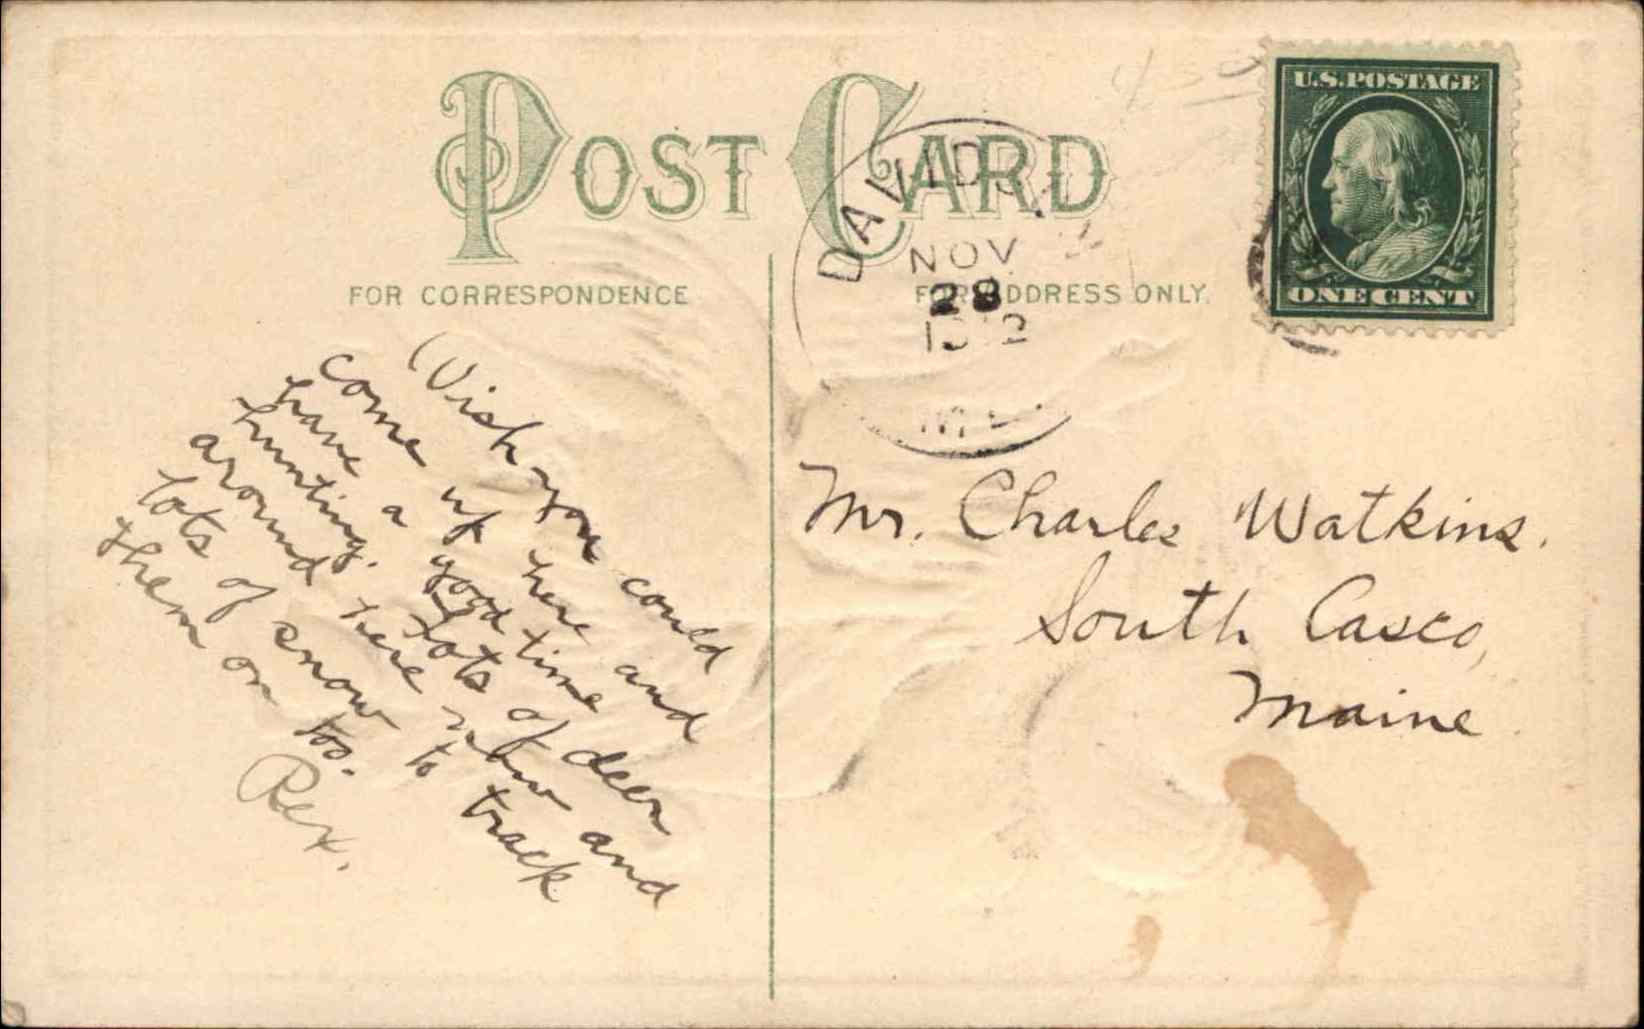 POST CARD
FOR CORRESPONDENCE
FOR ADDRESS ONLY.
U.S. POSTAGE
ONE CENT
NOV
28
1912
Wish you could
come up here and
have a good time
hunting. Lots of deer
around here now and
lots of snow to track
them on too.
Rex.
Mr. Charles Watkins.
South Casco,
Maine